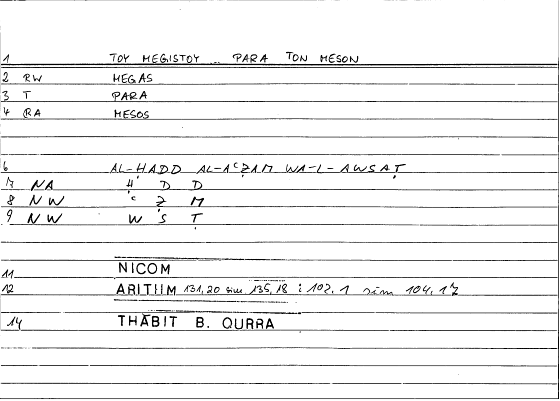 1 TOY MEGISTOY .. PARA TON MESON
2 RW MEGAS
3 T PARA
4 RA MESOS
6 AL-ḤADD AL-AʿẒAM WA-L-AWSAṬ
7 NA Ḥ D D
8 NW ʿ Ẓ M
9 NW W S Ṭ
11 NICOM
12 ARITHM 131,20 sim 135,18 : 102,1 sim 104,17
14 THĀBIT B. QURRA